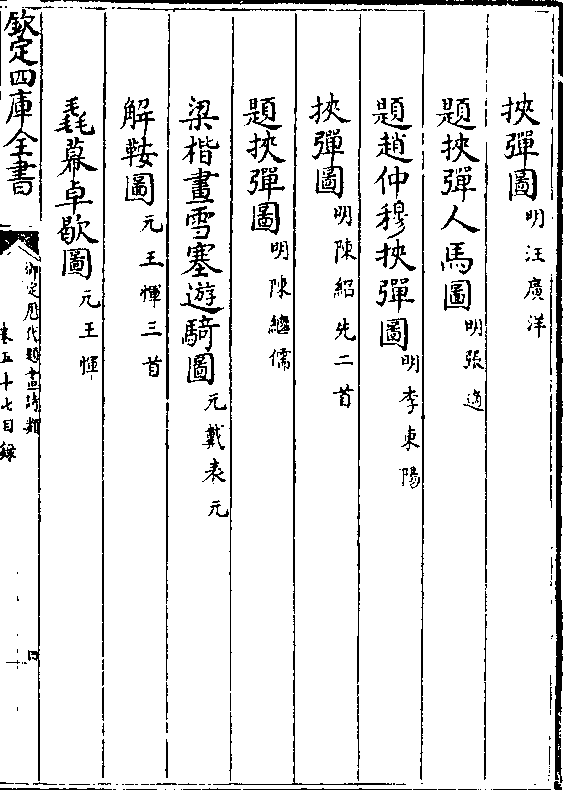 挾彈圖明汪廣洋
題挾彈人馬圖明張適
題趙仲穆挾彈圖明李東陽
挾彈圖明陳紹先二首
題挾彈圖明陳繼儒
梁楷畫雪塞遊騎圖元戴表元
解鞍圖元王惲三首
毳幕卓歇圖元王惲
欽定四庫全書
御定歷代題畫詩類
卷五十七目錄
四